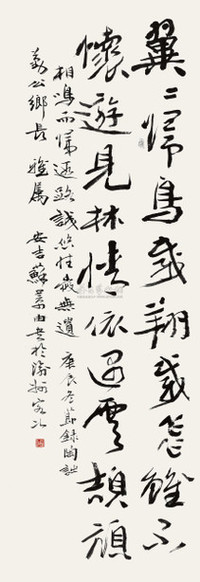 翼〻歸鳥載翔載飛雖不
懷遊見林情依遇雲頡頏
相鳴而歸遐路誠悠性愛無遺 庚辰冬節錄陶詩
公鄉長 雅屬 安吉蘇由書於渝州客次